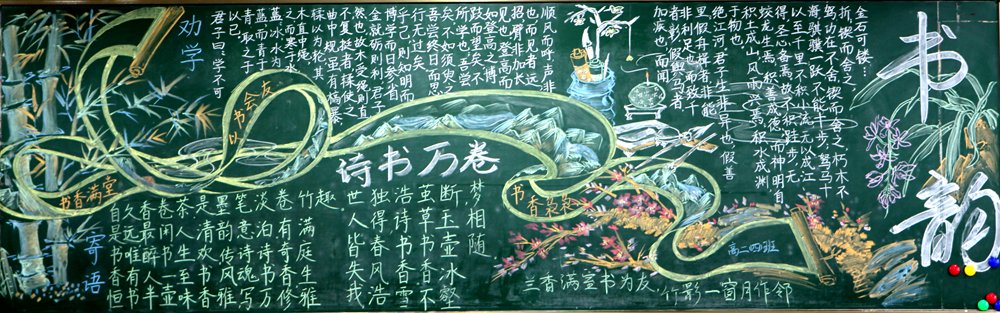 书韵
劝学
君子曰:学不可
以已。
青,取之于
蓝而青于
蓝冰水为
之而寒于水
木直中绳
輮以为轮其
曲中规虽有槁暴
不复挺者輮使
然也故木受绳则直
金就砺则利君子
博学而日参省
乎己则知明而
行无过矣
吾尝终日而思
矣不如须臾之
所学也吾尝
跂而望矣不
如登高之博
见也登高而
招臂非加长
也而见者远
顺风而呼声非
加疾也而闻
者彰假舆马者
非利足也而致千
里假舟楫者非能
江河君子生非异也善假
于物也
积土成山风雨兴焉积水成渊
蛟龙生焉积善成德而神明自
得圣心备焉故不积跬步无
以至千里不积小流无以成江
海骐骥一跃不能十步驽马十
驾功在不舍锲而舍之朽木不
折锲而不舍之
金石可镂
以
会友
书香满堂
诗书万卷
书香袅袅
高二四班
寄语
自是书香恒
久远唯有书
香最醉人半
卷闲书一壶
茶人生至味
是清欢书香
墨韵传风雅
笔意诗魂写
淡泊诗书万
卷有奇香修
竹满庭生雅
趣
世人皆失我
独得春风浩
浩诗书香雪
茧草书香不
断玉壶冰壑
梦相随
三香满室书为友
竹影一窗月作邻